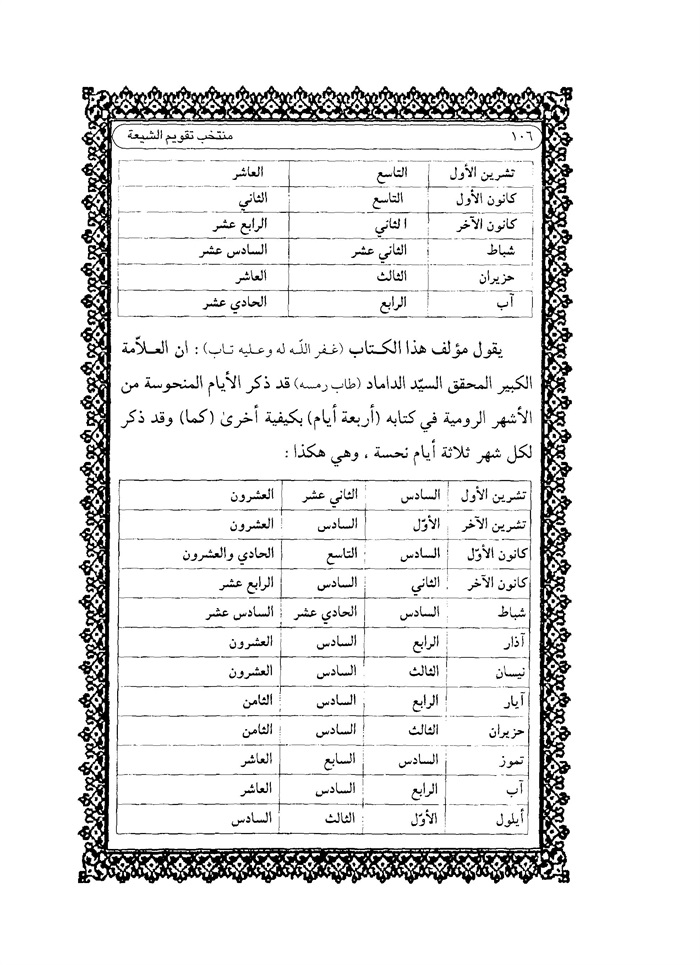 ١٠٦ منتخب تقويم الشيعة
تشرين الأول التاسع العاشر
كانون الأول التاسع الثاني
كانون الآخر الثاني الرابع عشر
شباط الثاني عشر السادس عشر
حزيران الثالث العاشر
آب الرابع الحادي عشر
يقول مؤلف هذا الكتاب (غفر اللّه له وعليه تاب) : ان العلاّمة
الكبير المحقق السيّد الداماد (طاب رمسه) قد ذكر الأيام المنحوسة من
الأشهر الرومية في كتابه (أربعة أيام) بكيفية أخرىٰ (كما) وقد ذكر
لكل شهر ثلاثة أيام نحسة ، وهي هكذا :
تشرين الأول السادس الثاني عشر العشرون
تشرين الآخر الأوّل السادس العشرون
كانون الأوّل السادس التاسع الحادي والعشرون
كانون الآخر الثاني السادس الرابع عشر
شباط السادس الحادي عشر السادس عشر
آذار الرابع السادس العشرون
نيسان الثالث السادس العشرون
آيار الرابع السادس الثامن
حزيران الثالث السادس الثامن
تموز السادس السابع العاشر
آب الرابع السادس العاشر
أيلول الأوّل الثالث السادس